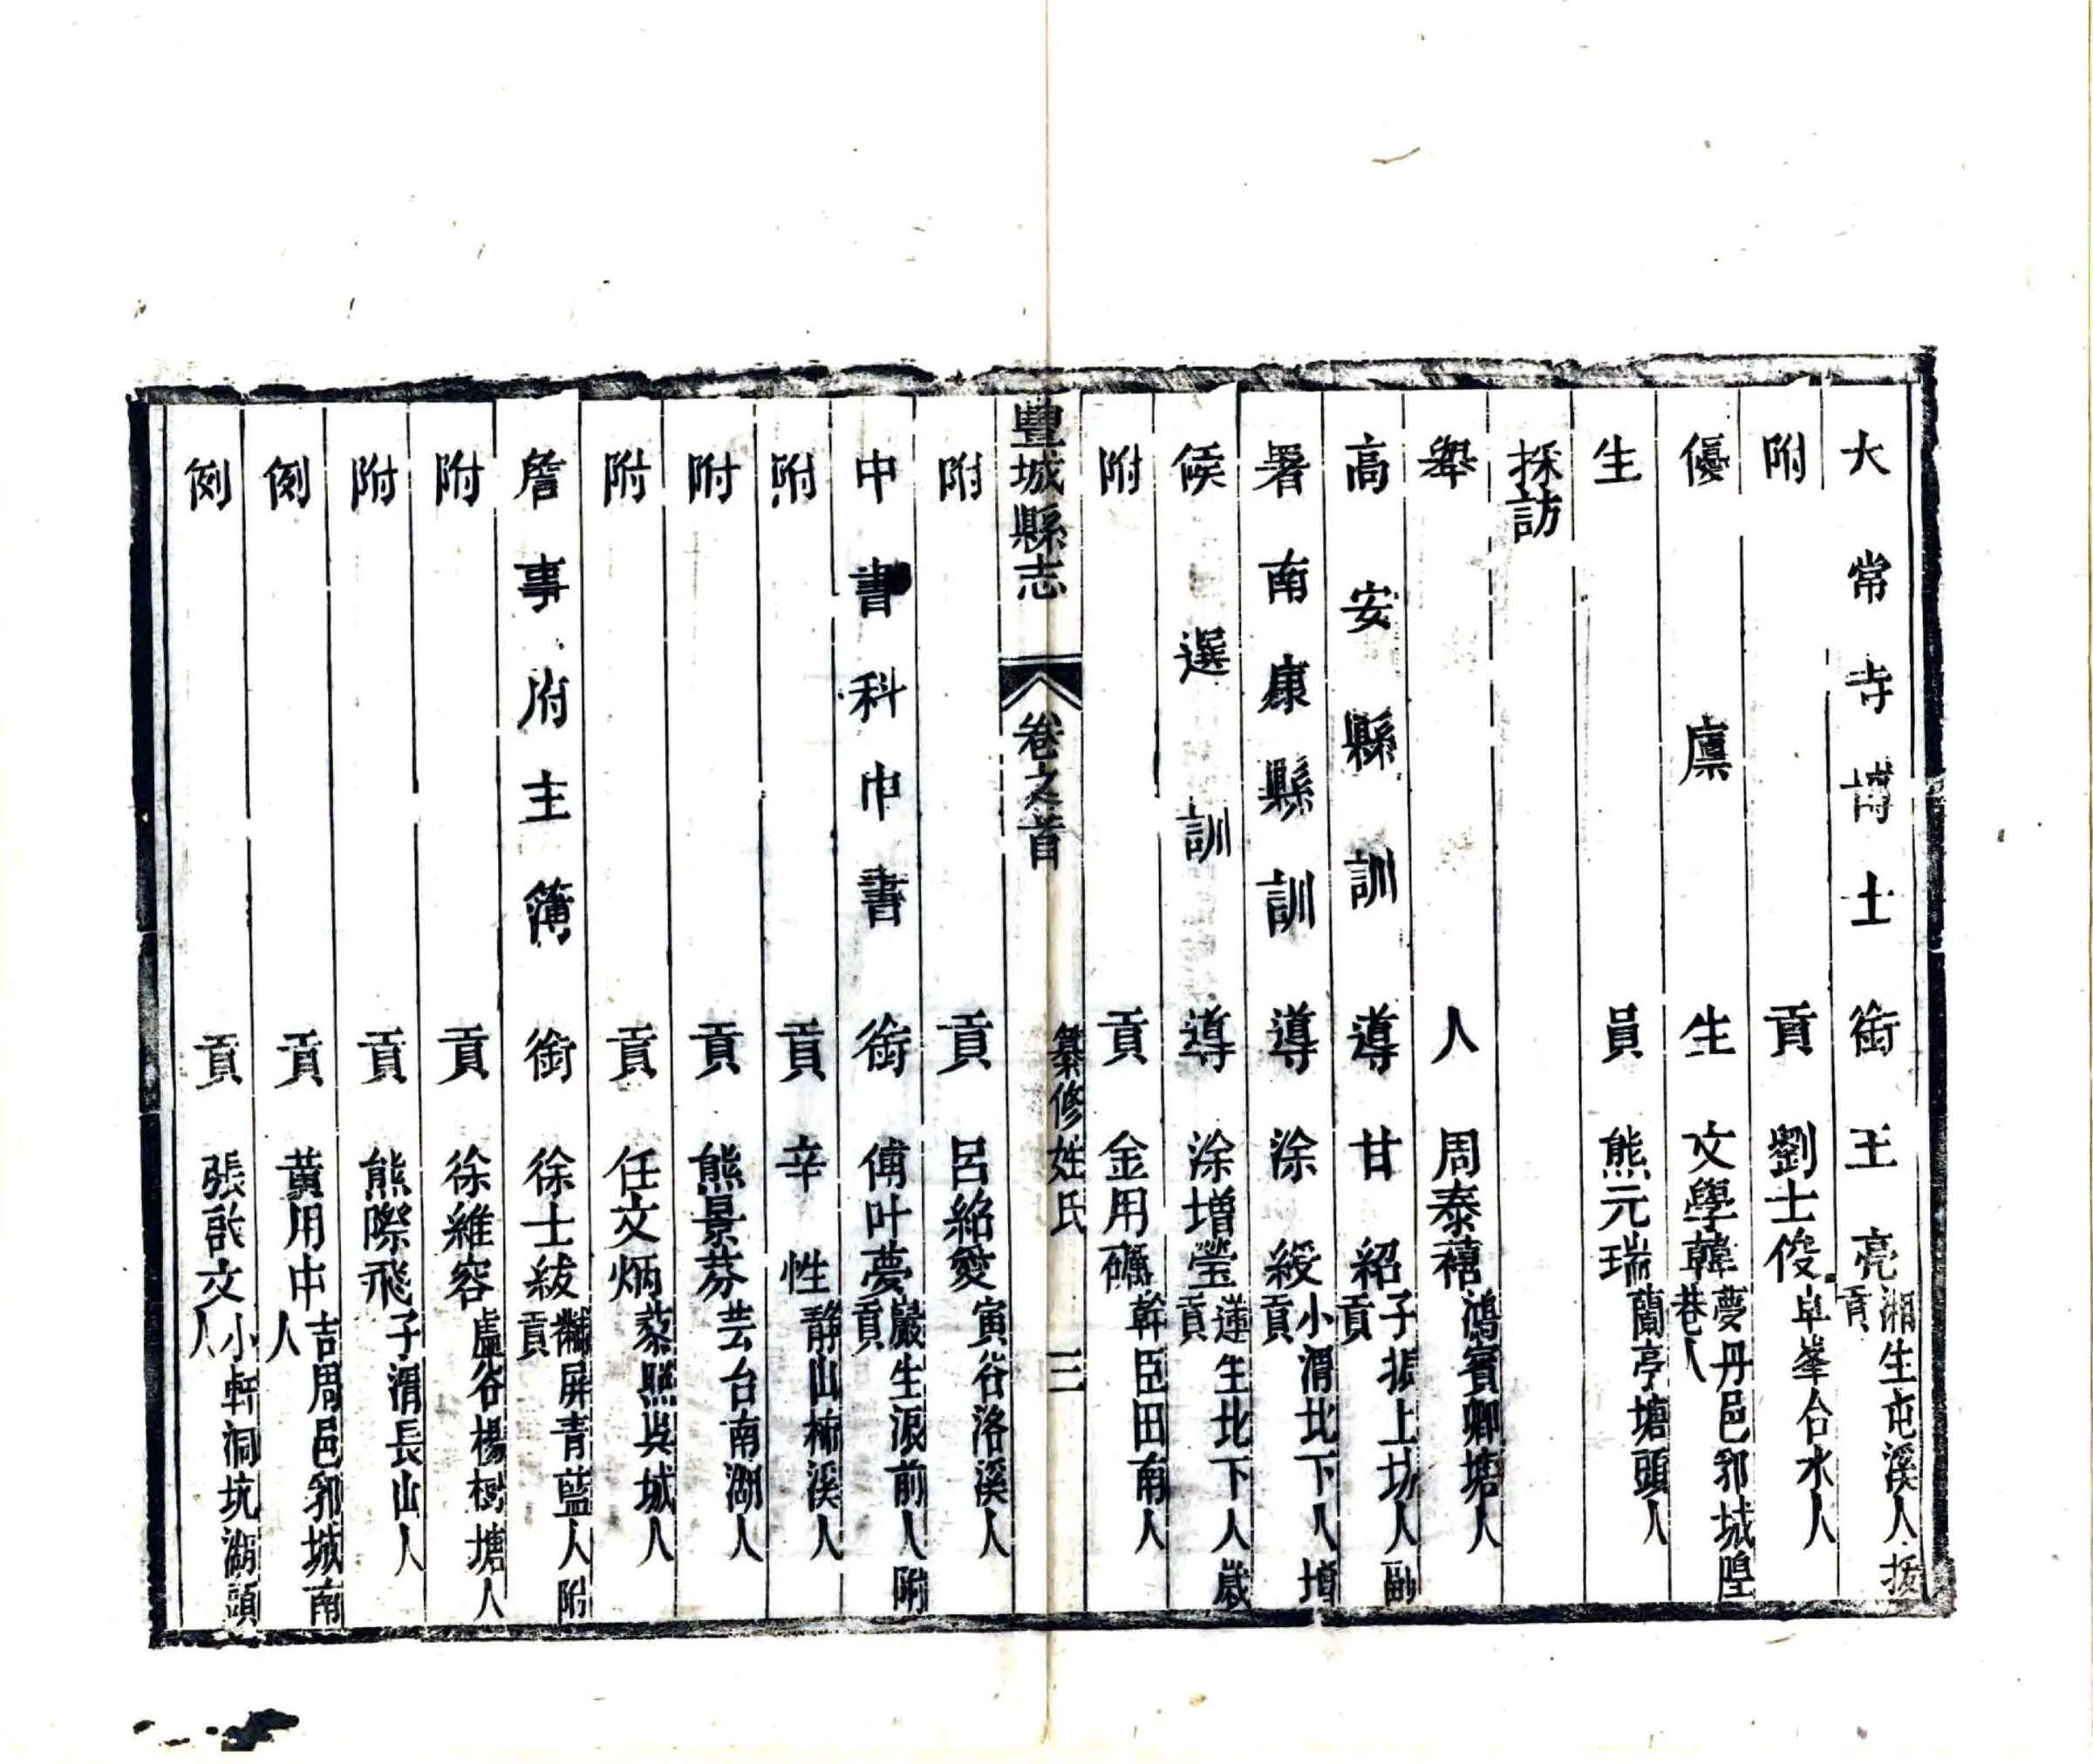 大常寺博士銜王亮湘生屯溪人拔貢
附貢劉士俊阜峯台水人
優廩生文學韓夢丹邑郭城隍巷人
生員熊元瑞蘭亭塘頭人
採訪
舉人周泰禧鴻賓卿塘人
高安縣訓導甘紹子振上坊人副貢
署南康縣訓導涂綬小渭北下人增貢
候選訓導涂增瑩蓮生北下人歲貢
附貢金用礪幹臣田南人
豐城縣志 卷之首 纂修姓氏 三
附貢呂紹夔寅谷洛溪人
中書科中書銜傅叶夢巖生泿前人附貢
附貢辛性靜山楠溪人
附貢熊景芬芸台南湖人
附貢任文炳藜照吳城人
詹事府主簿銜徐士紱黼屏青藍人附貢
附貢徐維容虛谷楊樹塘人
附貢熊際飛子渭長山人
例貢黃用中吉周邑郭城南人
例貢張啟文小軒洞坑湖頭人